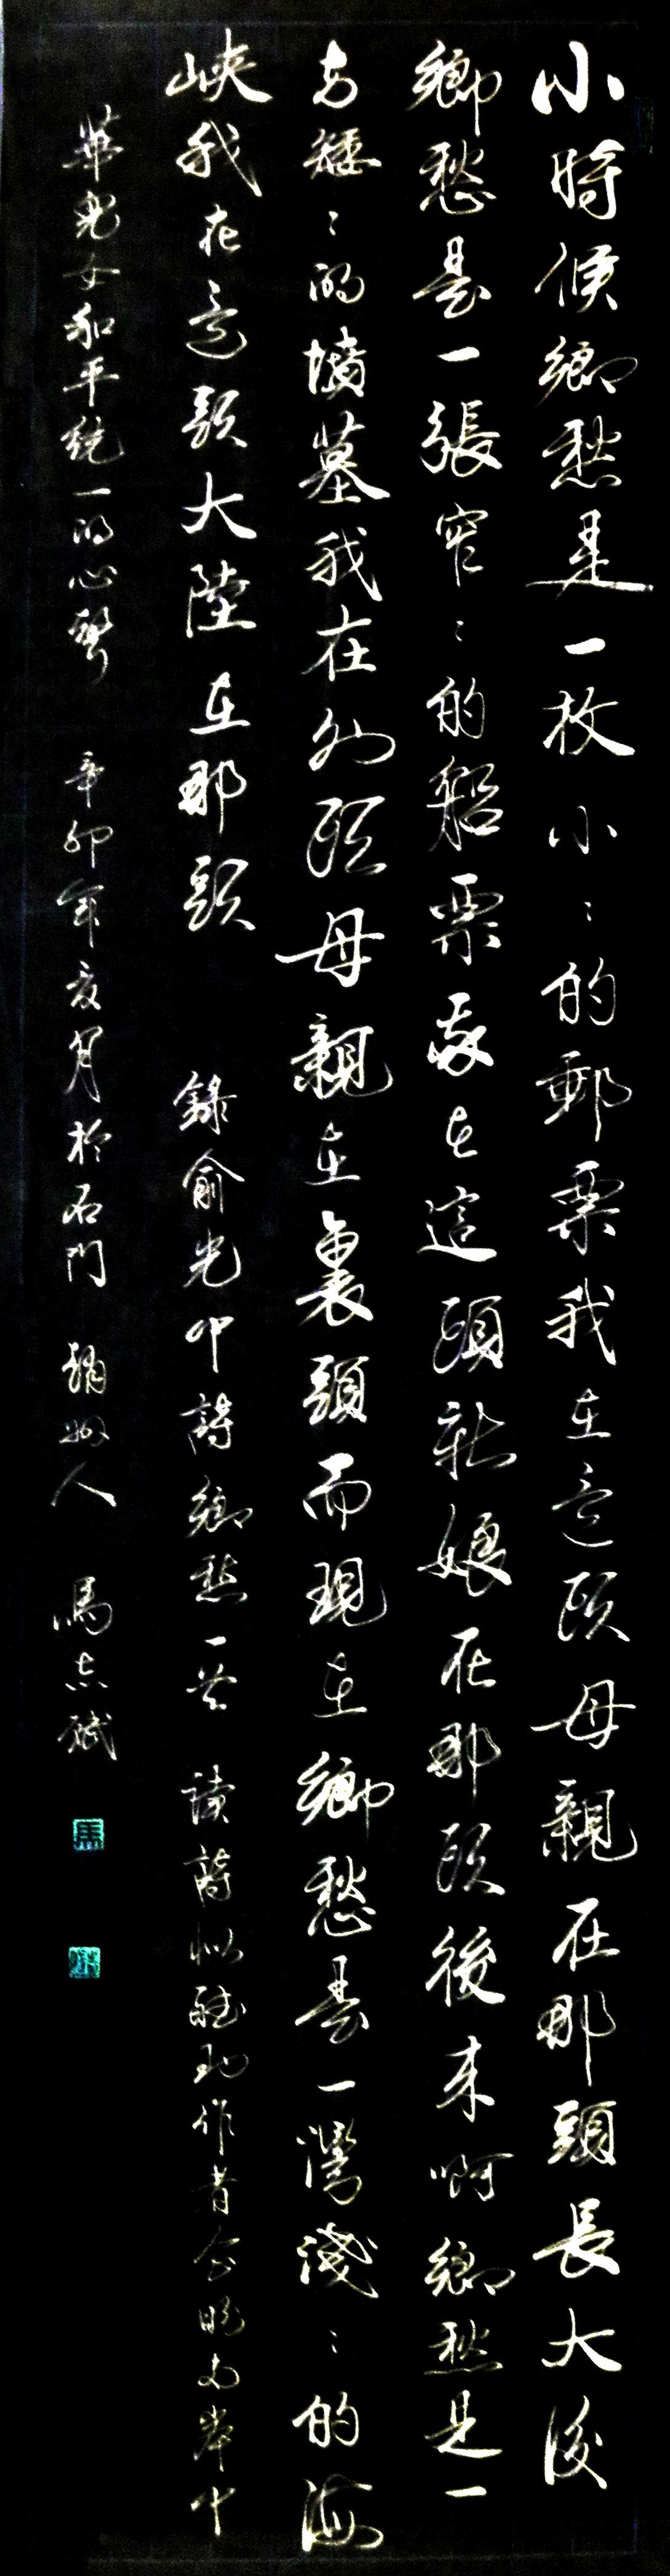 小時候鄉愁是一枚小：的郵票我在這頭母親在那頭長大後
鄉愁是一張窄：的船票我在這頭新娘在那頭後來啊鄉愁是一
方矮：的墳墓我在外頭母親在裏頭而現在鄉愁是一灣淺：的海
峽我在這頭大陸在那頭 錄俞光中詩鄉愁一首 讀詩似聽到作者企盼两岸中
華兒女和平統一的心聲 辛卯年亥月於石門 趙州人 馬志斌
馬